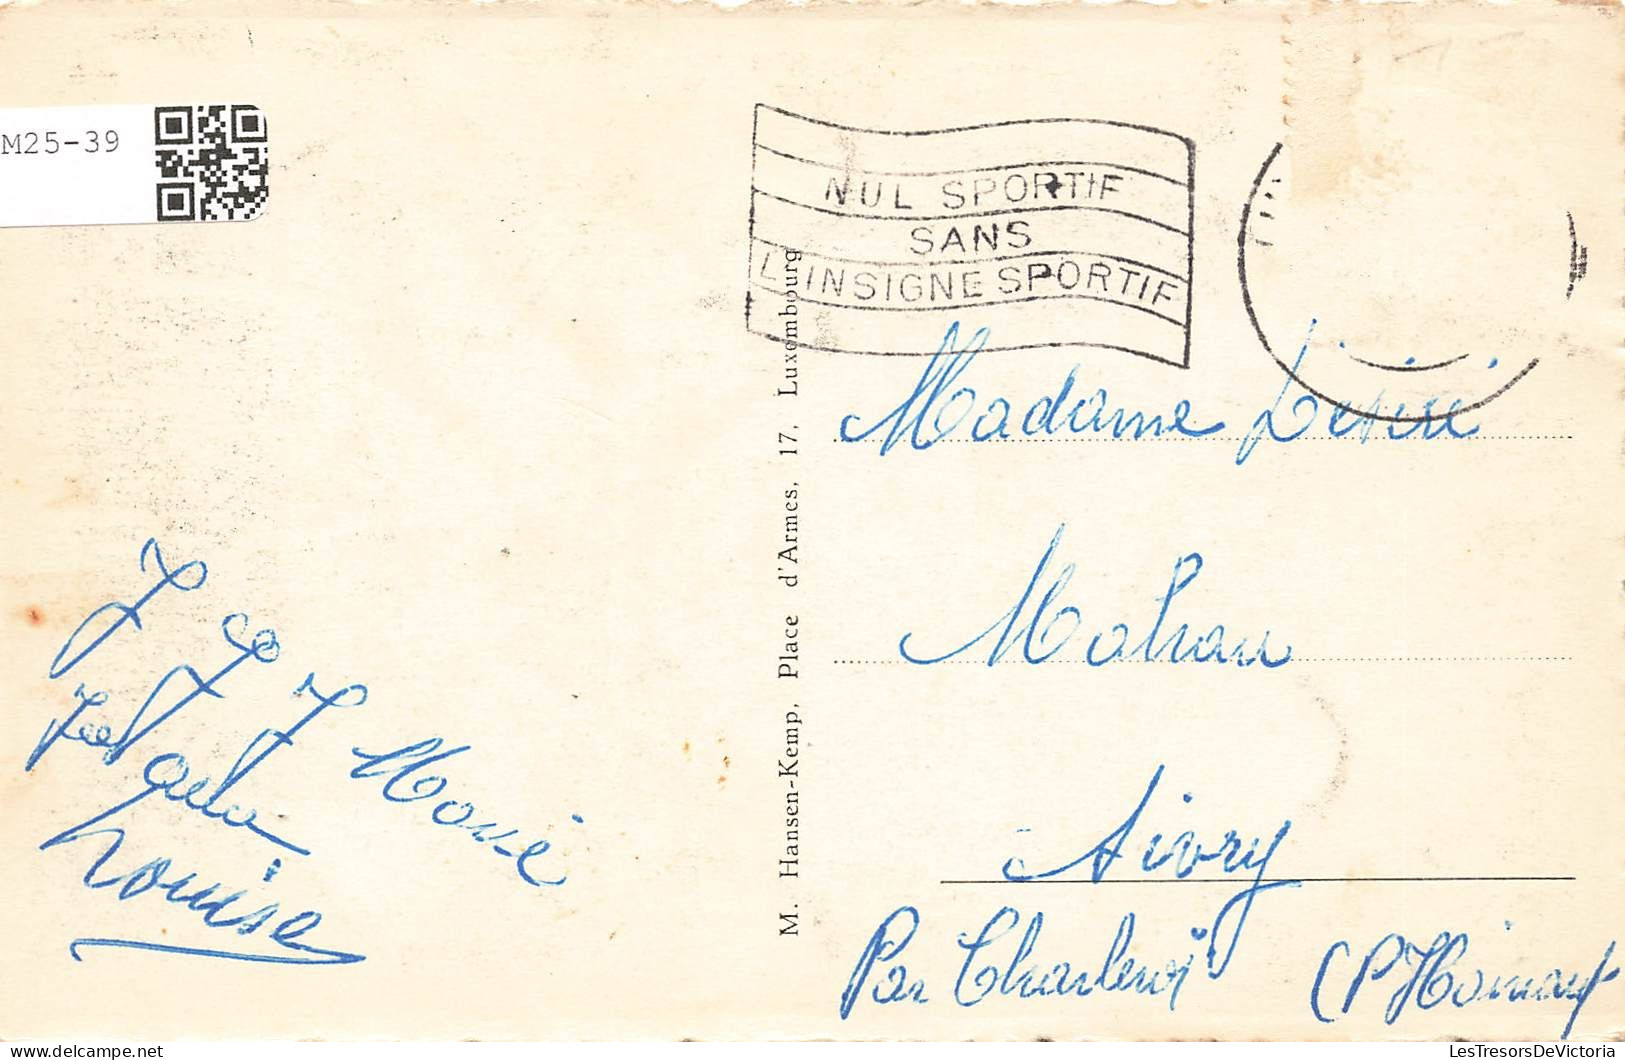 M25-39
NUL SPORTIF
SANS
L'INSIGNE SPORTIF
M. Hansen-Kemp, Place d'Armes, 17, Luxembourg
Madame Désiré
Mahau
à Sivry
Par Charleroi (P Hainaut
Louise
LesTresorsDeVictoria